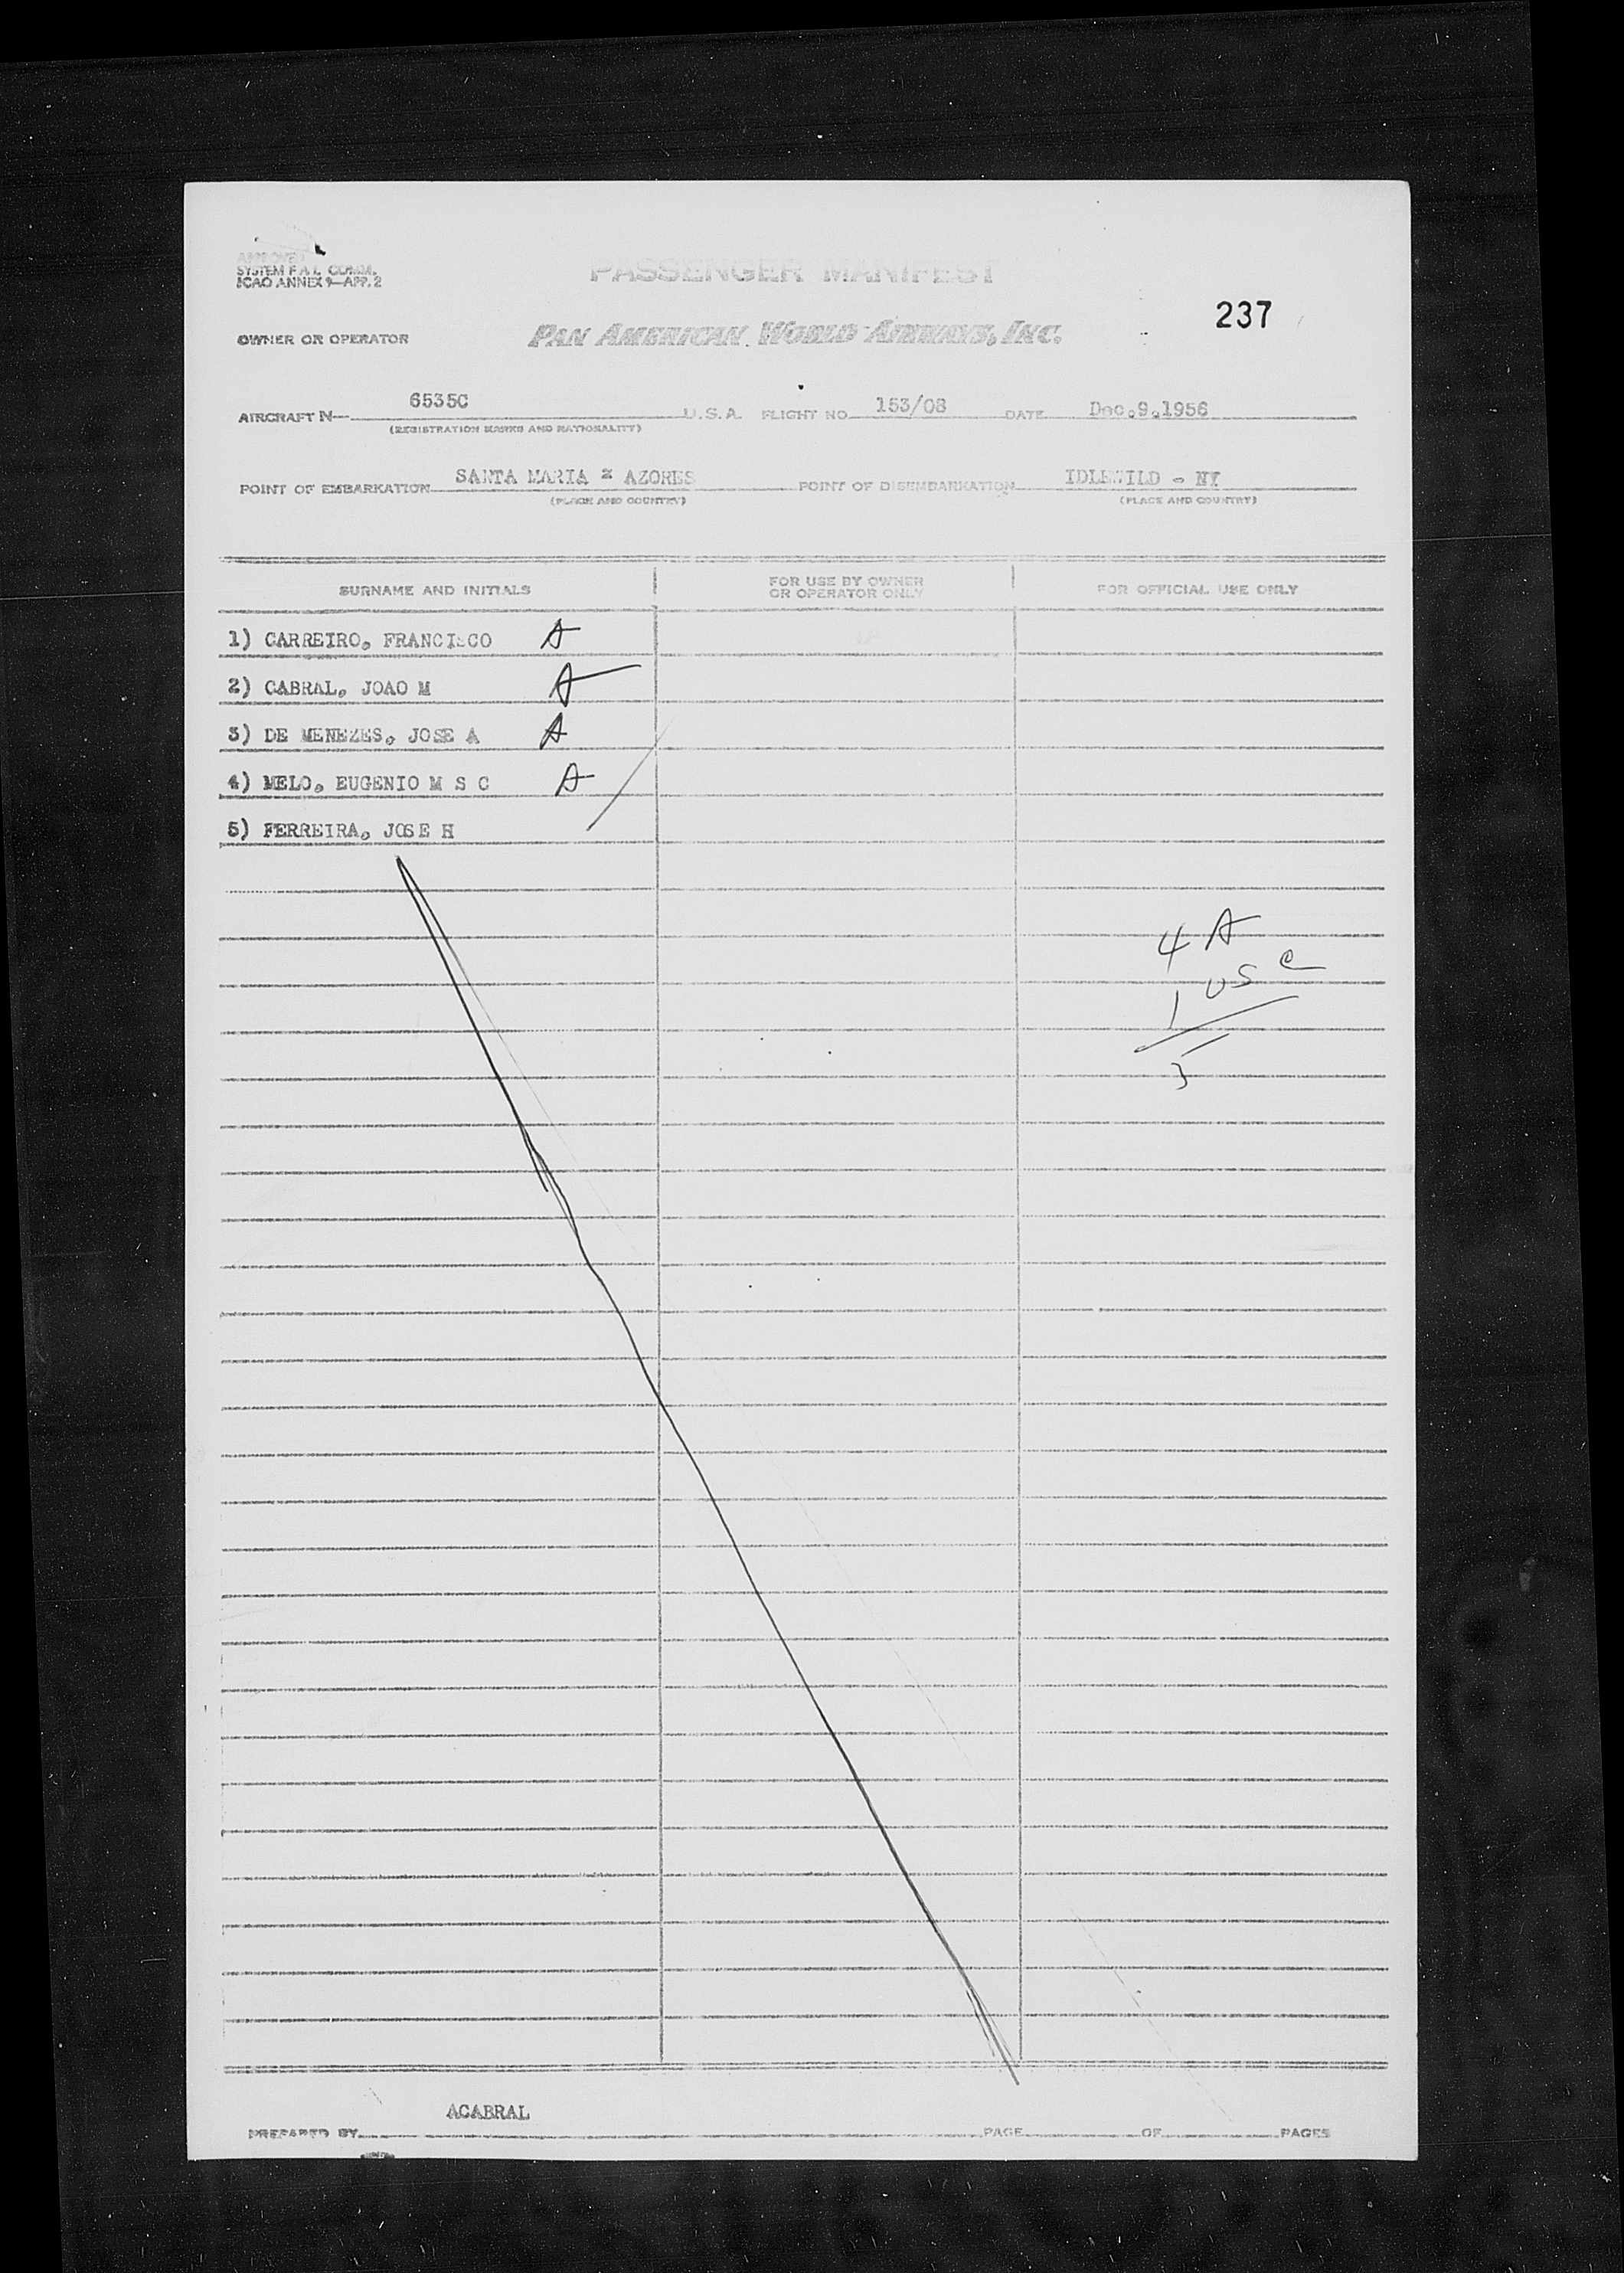 APPROVED
SYSTEM F.A.L. COMM.
ICAO ANNEX 9—APP. 2
PASSENGER MANIFEST
237
OWNER OR OPERATOR
PAN AMERICAN WORLD AIRWAYS, INC.
AIRCRAFT N— 6535C U.S.A. FLIGHT NO. 153/08 DATE Dec.9.1956
(REGISTRATION MARKS AND NATIONALITY)
POINT OF EMBARKATION SANTA MARIA - AZORES POINT OF DISEMBARKATION IDLEWILD - NY
(PLACE AND COUNTRY) (PLACE AND COUNTRY)
SURNAME AND INITIALS FOR USE BY OWNER OR OPERATOR ONLY FOR OFFICIAL USE ONLY
1) CARREIRO, FRANCISCO A
2) CABRAL, JOAO M A
3) DE MENEZES, JOSE A A
4) MELO, EUGENIO M S C A
5) FERREIRA, JOSE H
4 A
1 USC
5
ACABRAL
PREPARED BY PAGE OF PAGES